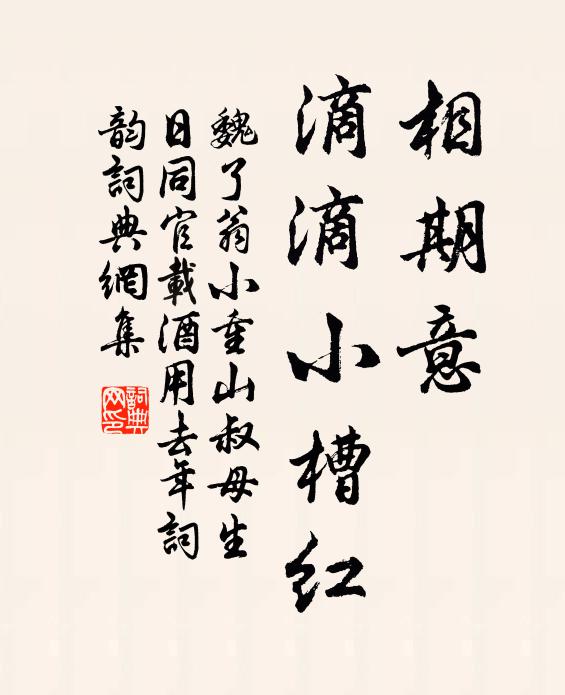 相期意
滴滴小槽紅
魏了翁小重山叔母生
日同官載酒用去年詞
韵詞典網集
詞典网印